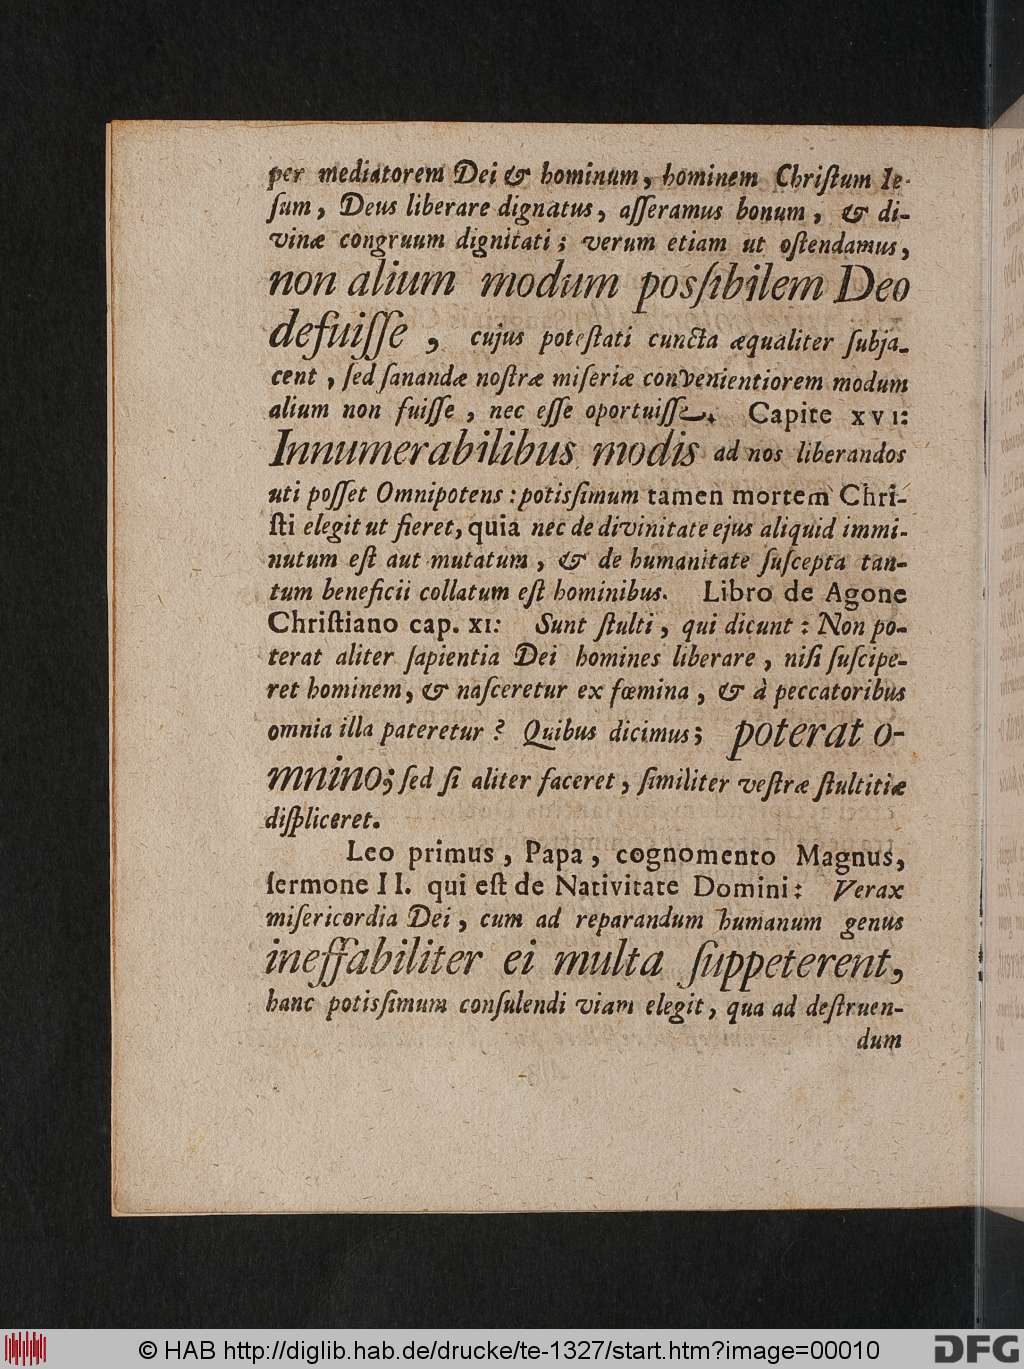 per mediatorem Dei & hominum, hominem Chriſtum Ie-
ſum, Deus liberare dignatus, aſſeramus bonum, & di-
vinæ congruum dignitati; verum etiam ut oſtendamus,
non alium modum posſibilem Deo
defuiſſe, cujus poteſtati cuncta æqualiter ſubja-
cent, ſed ſanandæ noſtræ miſeriæ convenientiorem modum
alium non fuiſſe, nec eſſe oportuiſſe. Capite XVI:
Innumerabilibus modis ad nos liberandos
uti poſſet Omnipotens: potisſimum tamen mortem Chri-
ſti elegit ut fieret, quia nec de divinitate ejus aliquid immi-
nutum eſt aut mutatum, & de humanitate ſuſcepta tan-
tum beneficii collatum eſt hominibus. Libro de Agone
Chriſtiano cap. XI: Sunt ſtulti, qui dicunt: Non po-
terat aliter ſapientia Dei homines liberare, niſi ſuſcipe-
ret hominem, & naſceretur ex fœmina, & à peccatoribus
omnia illa pateretur? Quibus dicimus; poterat o-
mnino; ſed ſi aliter faceret, ſimiliter veſtræ ſtultitiæ
diſpliceret.
Leo primus, Papa, cognomento Magnus,
ſermone II. qui eſt de Nativitate Domini: Verax
miſericordia Dei, cum ad reparandum humanum genus
ineffabiliter ei multa ſuppeterent,
hanc potisſimum conſulendi viam elegit, qua ad deſtruen-
dum
© HAB http://diglib.hab.de/drucke/te-1327/start.htm?image=00010
DFG